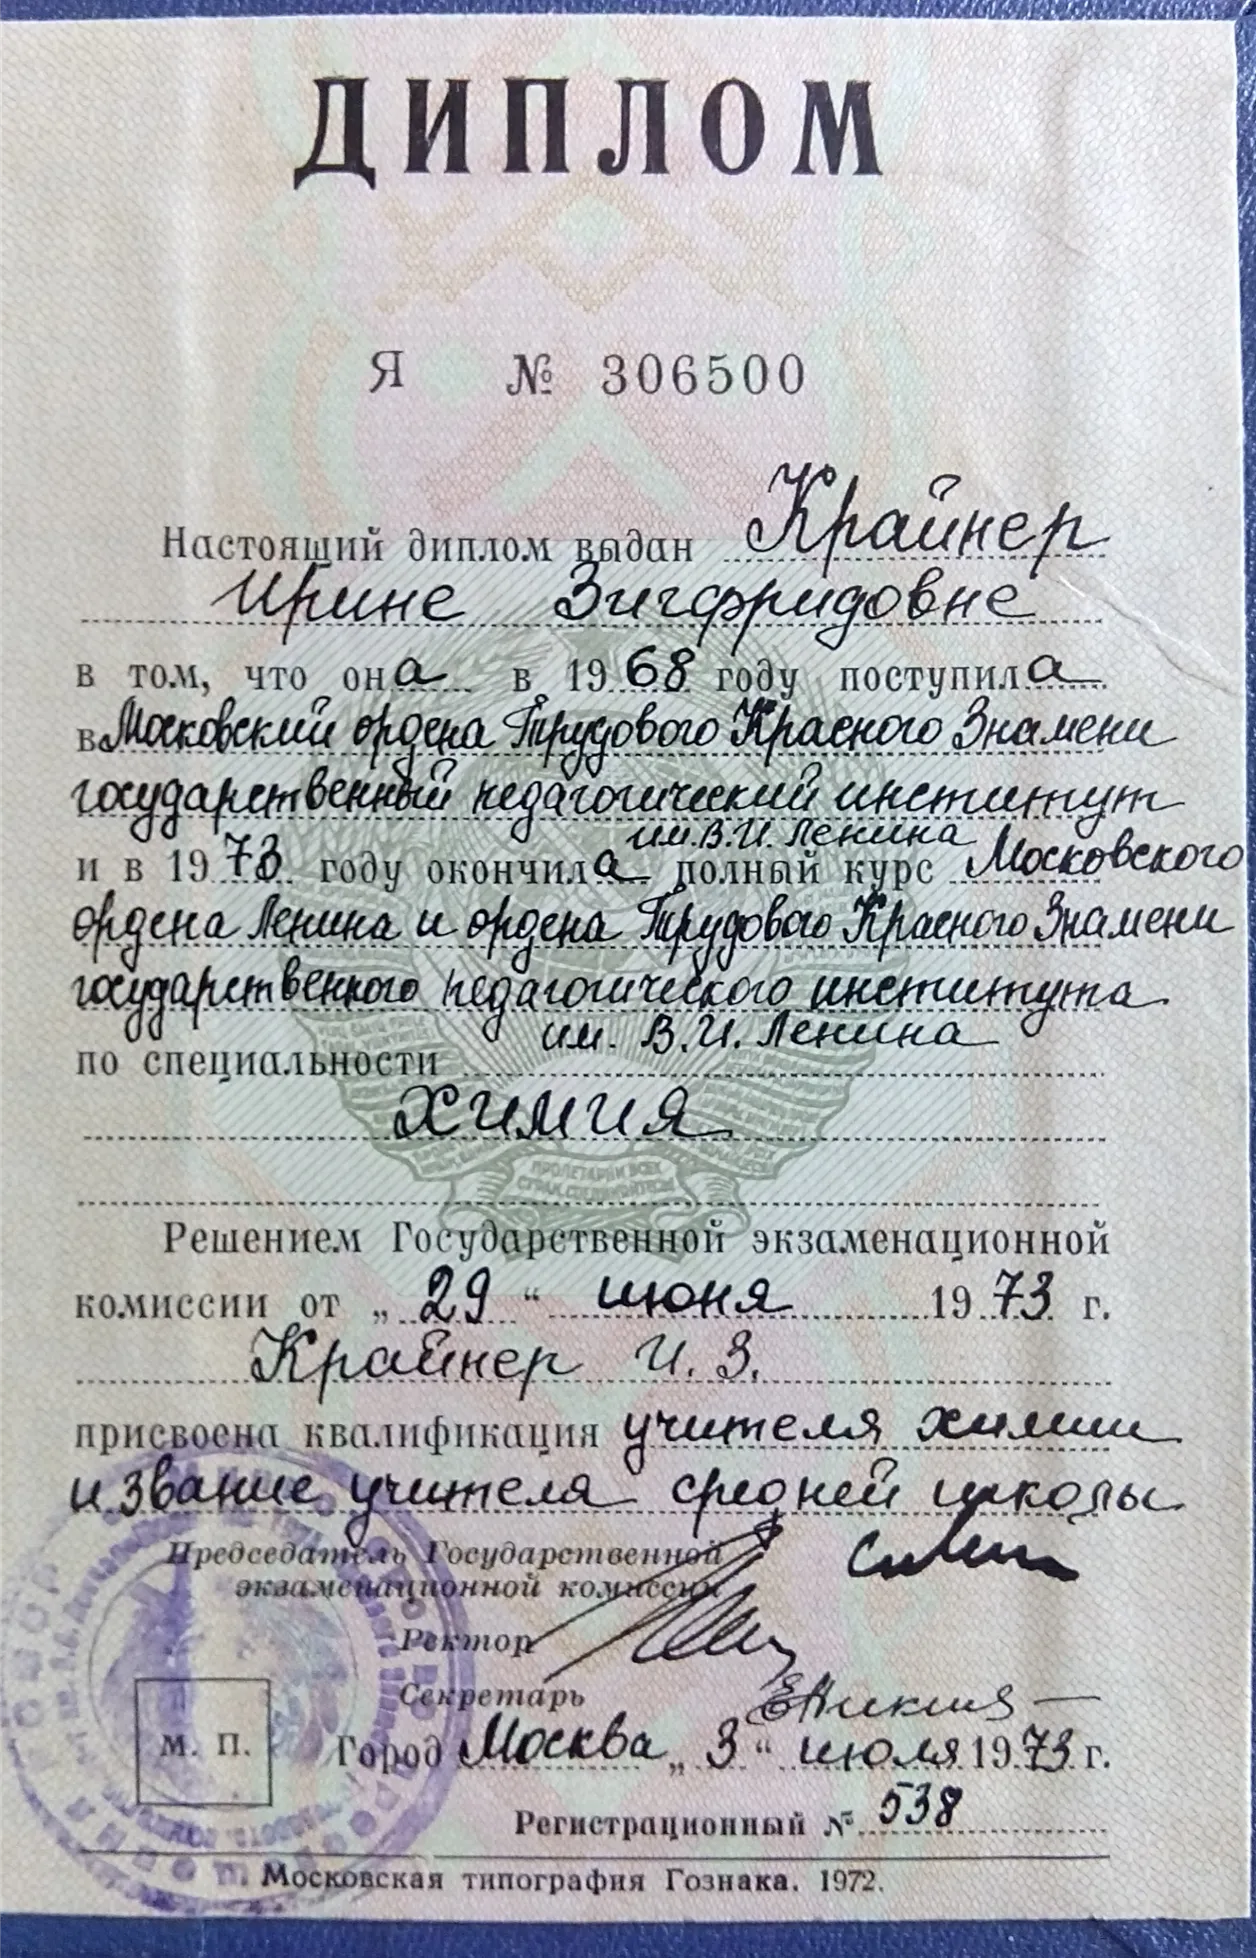 ДИПЛОМ
Я № 306500
Настоящий диплом выдан Крайнер
Ирине Зигфридовне
в том, что она в 1968 году поступила
в Московский ордена Трудового Красного Знамени
государственный педагогический институт
им. В.И. Ленина
и в 1973 году окончила полный курс Московского
ордена Ленина и ордена Трудового Красного Знамени
государственного педагогического института
им. В.И. Ленина
по специальности
химия
ПРОЛЕТАРИИ ВСЕХ
СТРАН, СОЕДИНЯЙТЕСЬ
Решением Государственной экзаменационной
комиссии от „29“ июня 1973 г.
Крайнер И. З.
присвоена квалификация учителя химии
и звание учителя средней школы
Председатель Государственной
экзаменационной комиссии
Ректор
Секретарь
М. П.
Город Москва „3“ июля 1973 г.
Регистрационный № 538
Московская типография Гознака. 1972.